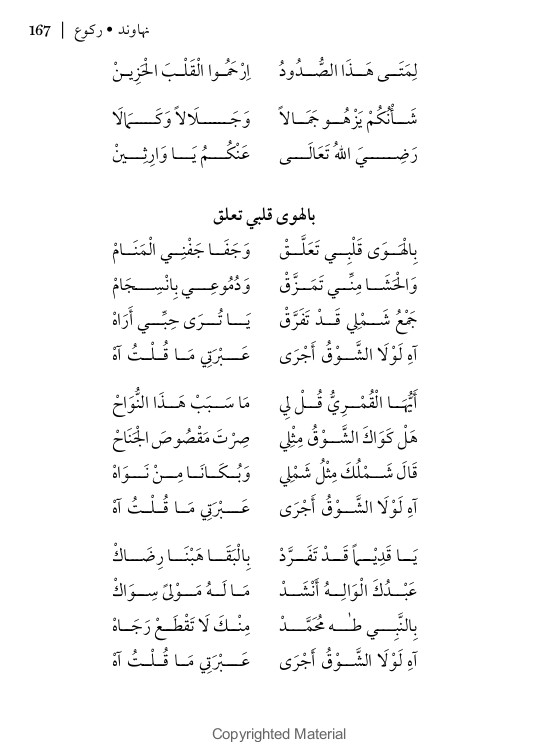 نهاوند • ركوع | 167
لِمَتَـى هَـذَا الصُّـدُودُ اِرْحَمُـوا الْقَلْـبَ الْحَزِيـنْ
شَـأْنُكُمْ يَزْهُـو جَمَـالاً وَجَـلَالاً وَكَـمَالَا
رَضِـيَ اللهُ تَعَالَـى عَنْكُـمُ يَـا وَارِثِيـنْ
بالهوى قلبي تعلق
بِالْهَـوَى قَلْبِـي تَعَلَّـقْ وَجَفَـا جَفْنِـي الْمَنَـامْ
وَالْحَشَـا مِنِّـي تَمَـزَّقْ وَدُمُوعِـي بِانْسِـجَامْ
جَمْعُ شَـمْلِي قَـدْ تَفَرَّقْ يَـا تُـرَى حِبِّـي أَرَاهْ
آهِ لَوْلَا الشَّـوْقُ أَجْرَى عَـبْرَتِي مَـا قُلْـتُ آهْ
أَيُّهَـا الْقُمْـرِيُّ قُـلْ لِي مَـا سَـبَبْ هَـذَا النُّـوَاحْ
هَلْ كَوَاكَ الشَّـوْقُ مِثْلِي صِرْتَ مَقْصُوصَ الْجَنَاحْ
قَالَ شَـمْلُكَ مِثْلُ شَمْلِي وَبُـكَانَـا مِـنْ نَـوَاهْ
آهِ لَوْلَا الشَّـوْقُ أَجْرَى عَـبْرَتِي مَـا قُلْـتُ آهْ
يَـا قَدِيـماً قَـدْ تَفَـرَّدْ بِالْبَقَـا هَبْنَـا رِضَـاكْ
عَبْـدُكَ الْوَالِـهُ أَنْشَـدْ مَـا لَـهُ مَـوْلىً سِـوَاكْ
بِالنَّبِـي طـٰـه مُحَمَّـدْ مِنْـكَ لَا تَقْطَـعْ رَجَـاهْ
آهِ لَوْلَا الشَّـوْقُ أَجْرَى عَـبْرَتِي مَـا قُلْـتُ آهْ
Copyrighted Material